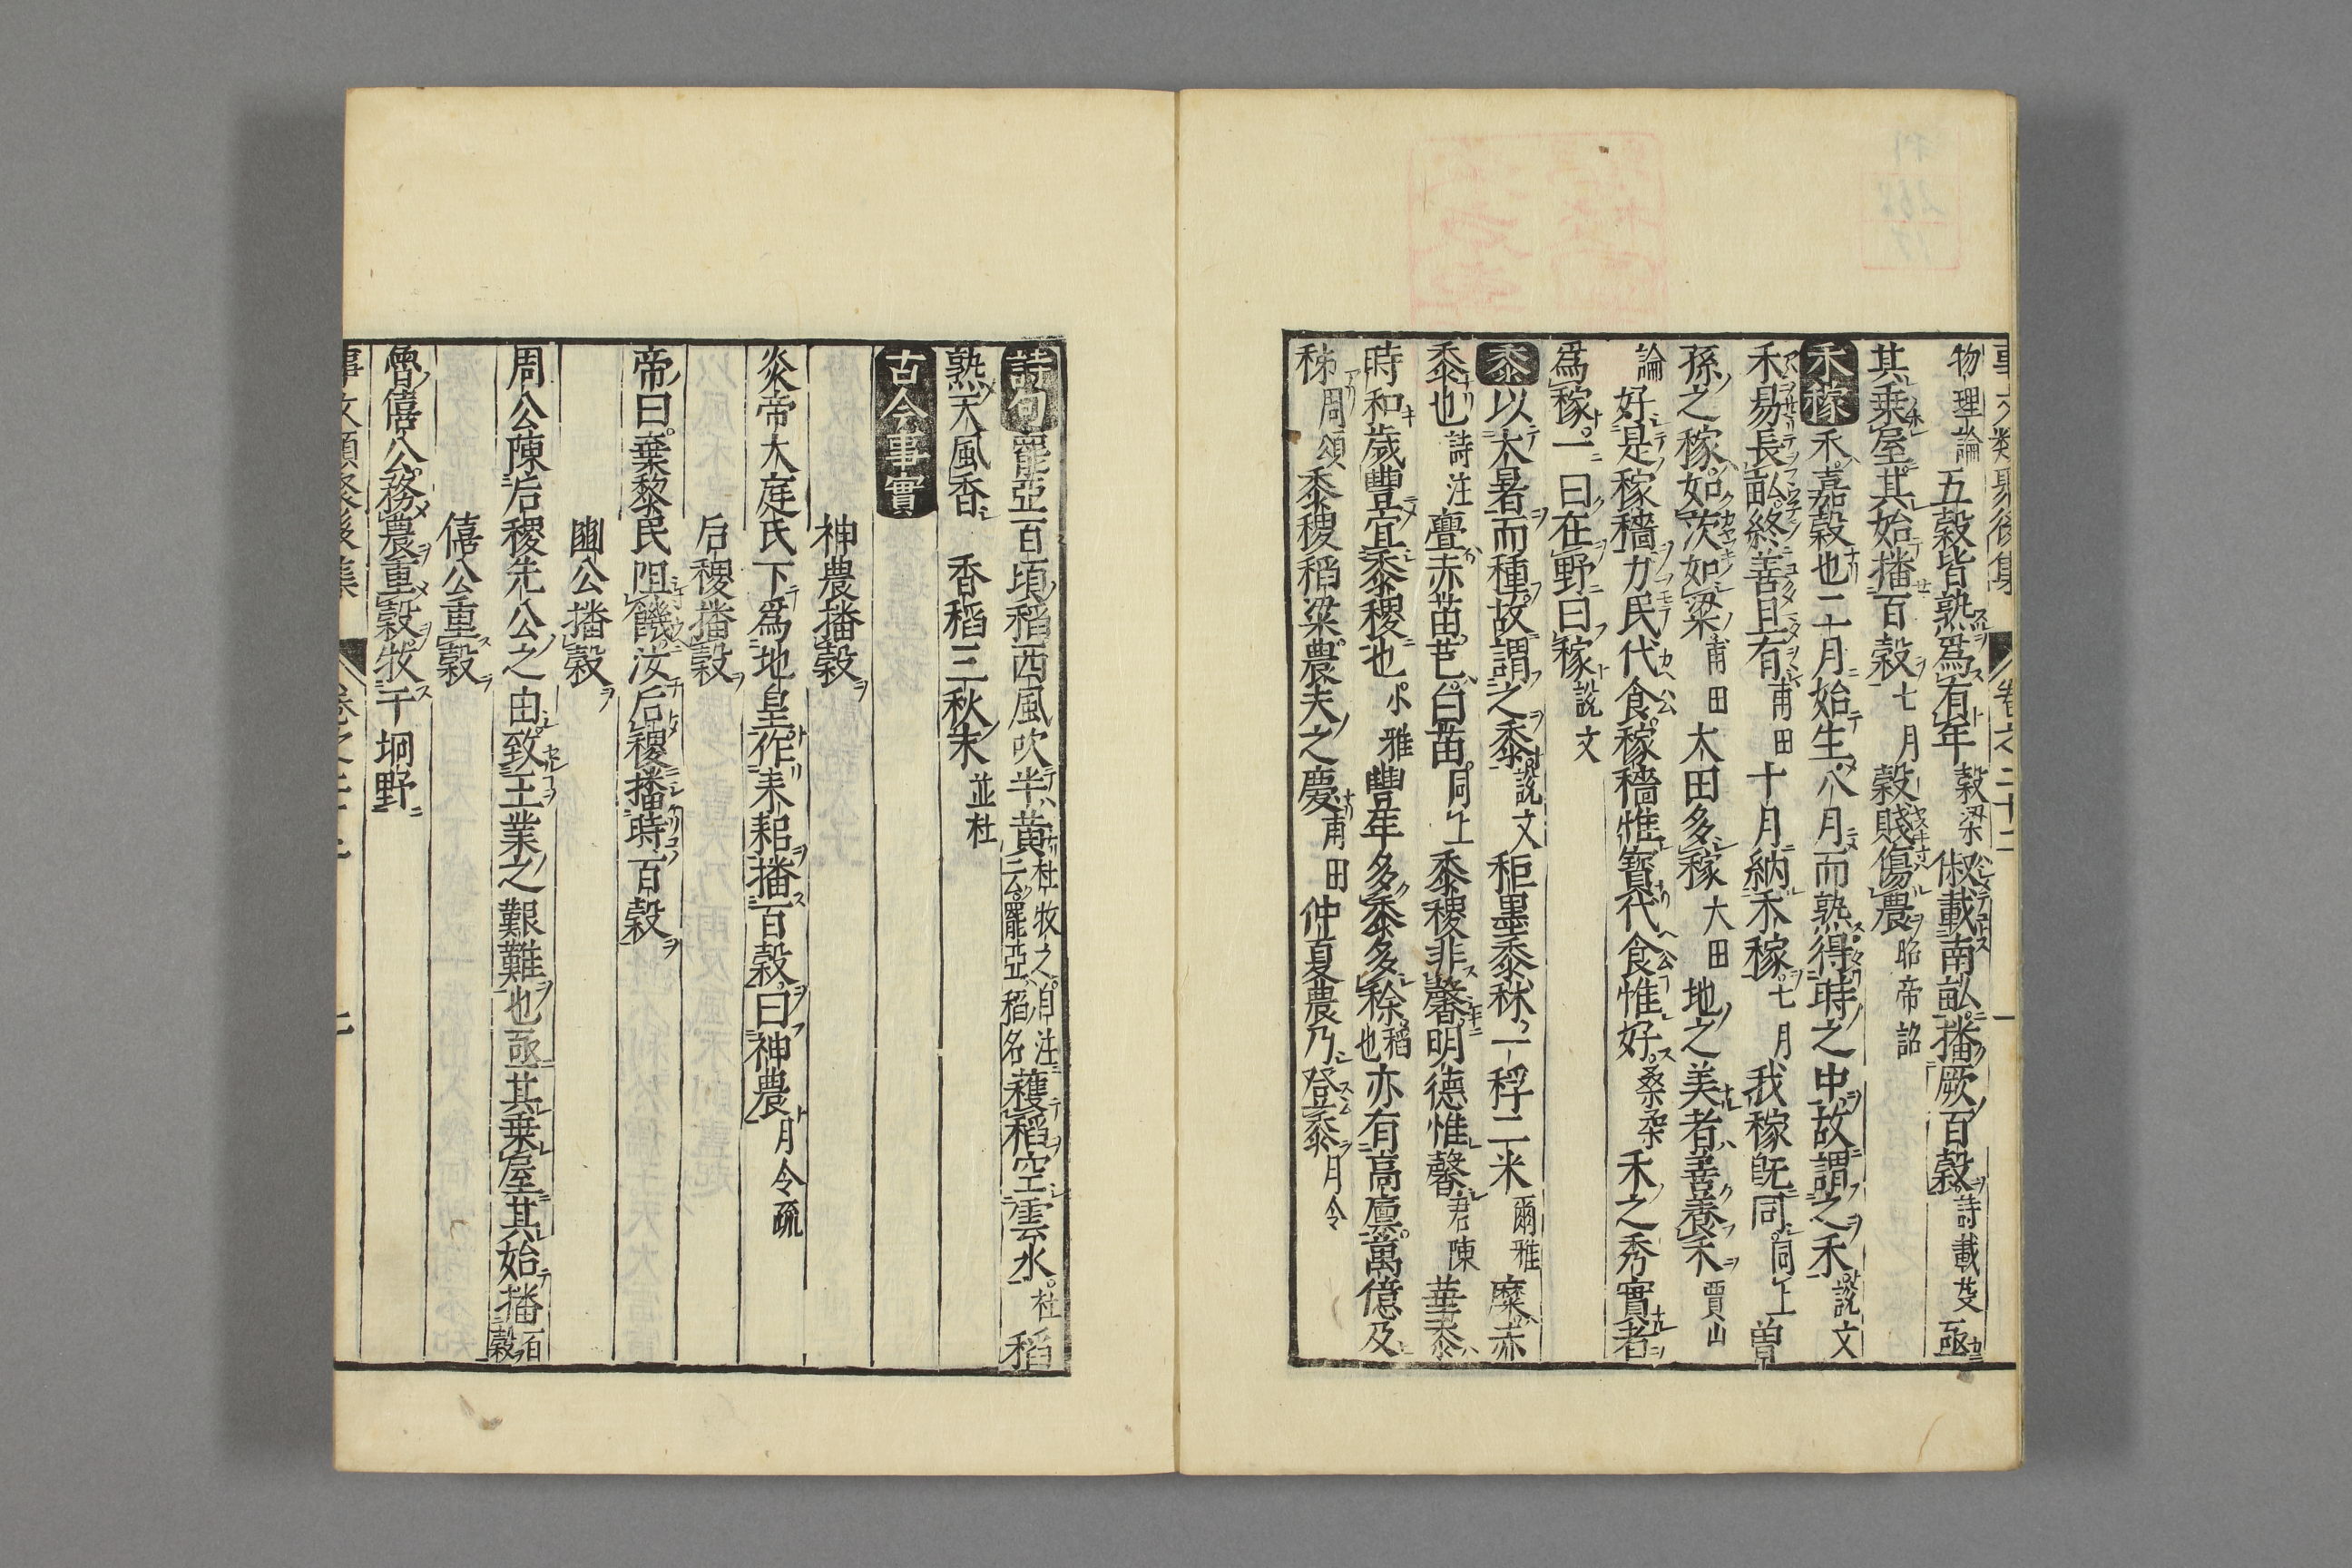 事文類聚後集 卷之二十二 一
物理論五穀皆熟爲有年穀梁俶載南畝播厥百穀詩載芟亟
其乘屋其始播百穀七月穀賤傷農昭帝詔
禾稼禾嘉穀也二月始生八月而熟得時之中故謂之禾說文
禾易長畝終善且有甫田十月納禾稼七月我稼旣同同上曽
孫之稼如茨如梁甫田大田多稼大田地之美者善養禾賈山
論好是稼穡力民代食稼穡惟寶代食惟好桑柔禾之秀實者
爲稼一曰在野曰稼說文
黍以大暑而種故謂之黍說文秬黒黍秠一稃二米爾雅穈赤
黍也詩注亹赤苗芑白苗同上黍稷非馨明德惟馨君陳華黍
時和歲豐宜黍稷也小雅豐年多黍多稌稻也亦有高廩萬億及
秭周頌黍稷稻粱農夫之慶甫田仲夏農乃登黍月令
詩句䆉稏百頃稻西風吹半黃杜牧之自注云䆉稏稻名穫稻空雲水杜稻
熟天風香 香稻三秋末並杜
古今事實
神農播穀
炎帝大庭氏下爲地皇作耒耜播百穀曰神農月令疏
后稷播穀
帝曰棄黎民阻饑汝后稷播時百穀
豳公播穀
周公陳后稷先公之由致王業之艱難也亟其乘屋其始播百穀
僖公重穀
魯僖公務農重穀牧于坰野
事文類聚後集